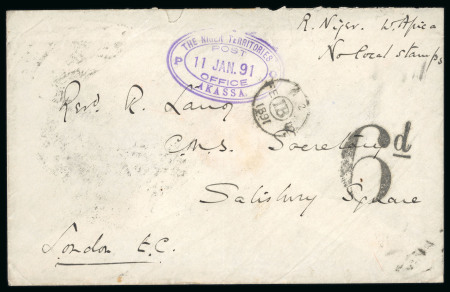 R. Niger. W. Africa
No local stamps
THE NIGER TERRITORIES
POST
11 JAN. 91
OFFICE
AKASSA.
Revd. R. Lang
C.M.S. Secretary
6d
Salisbury Square
London E.C.